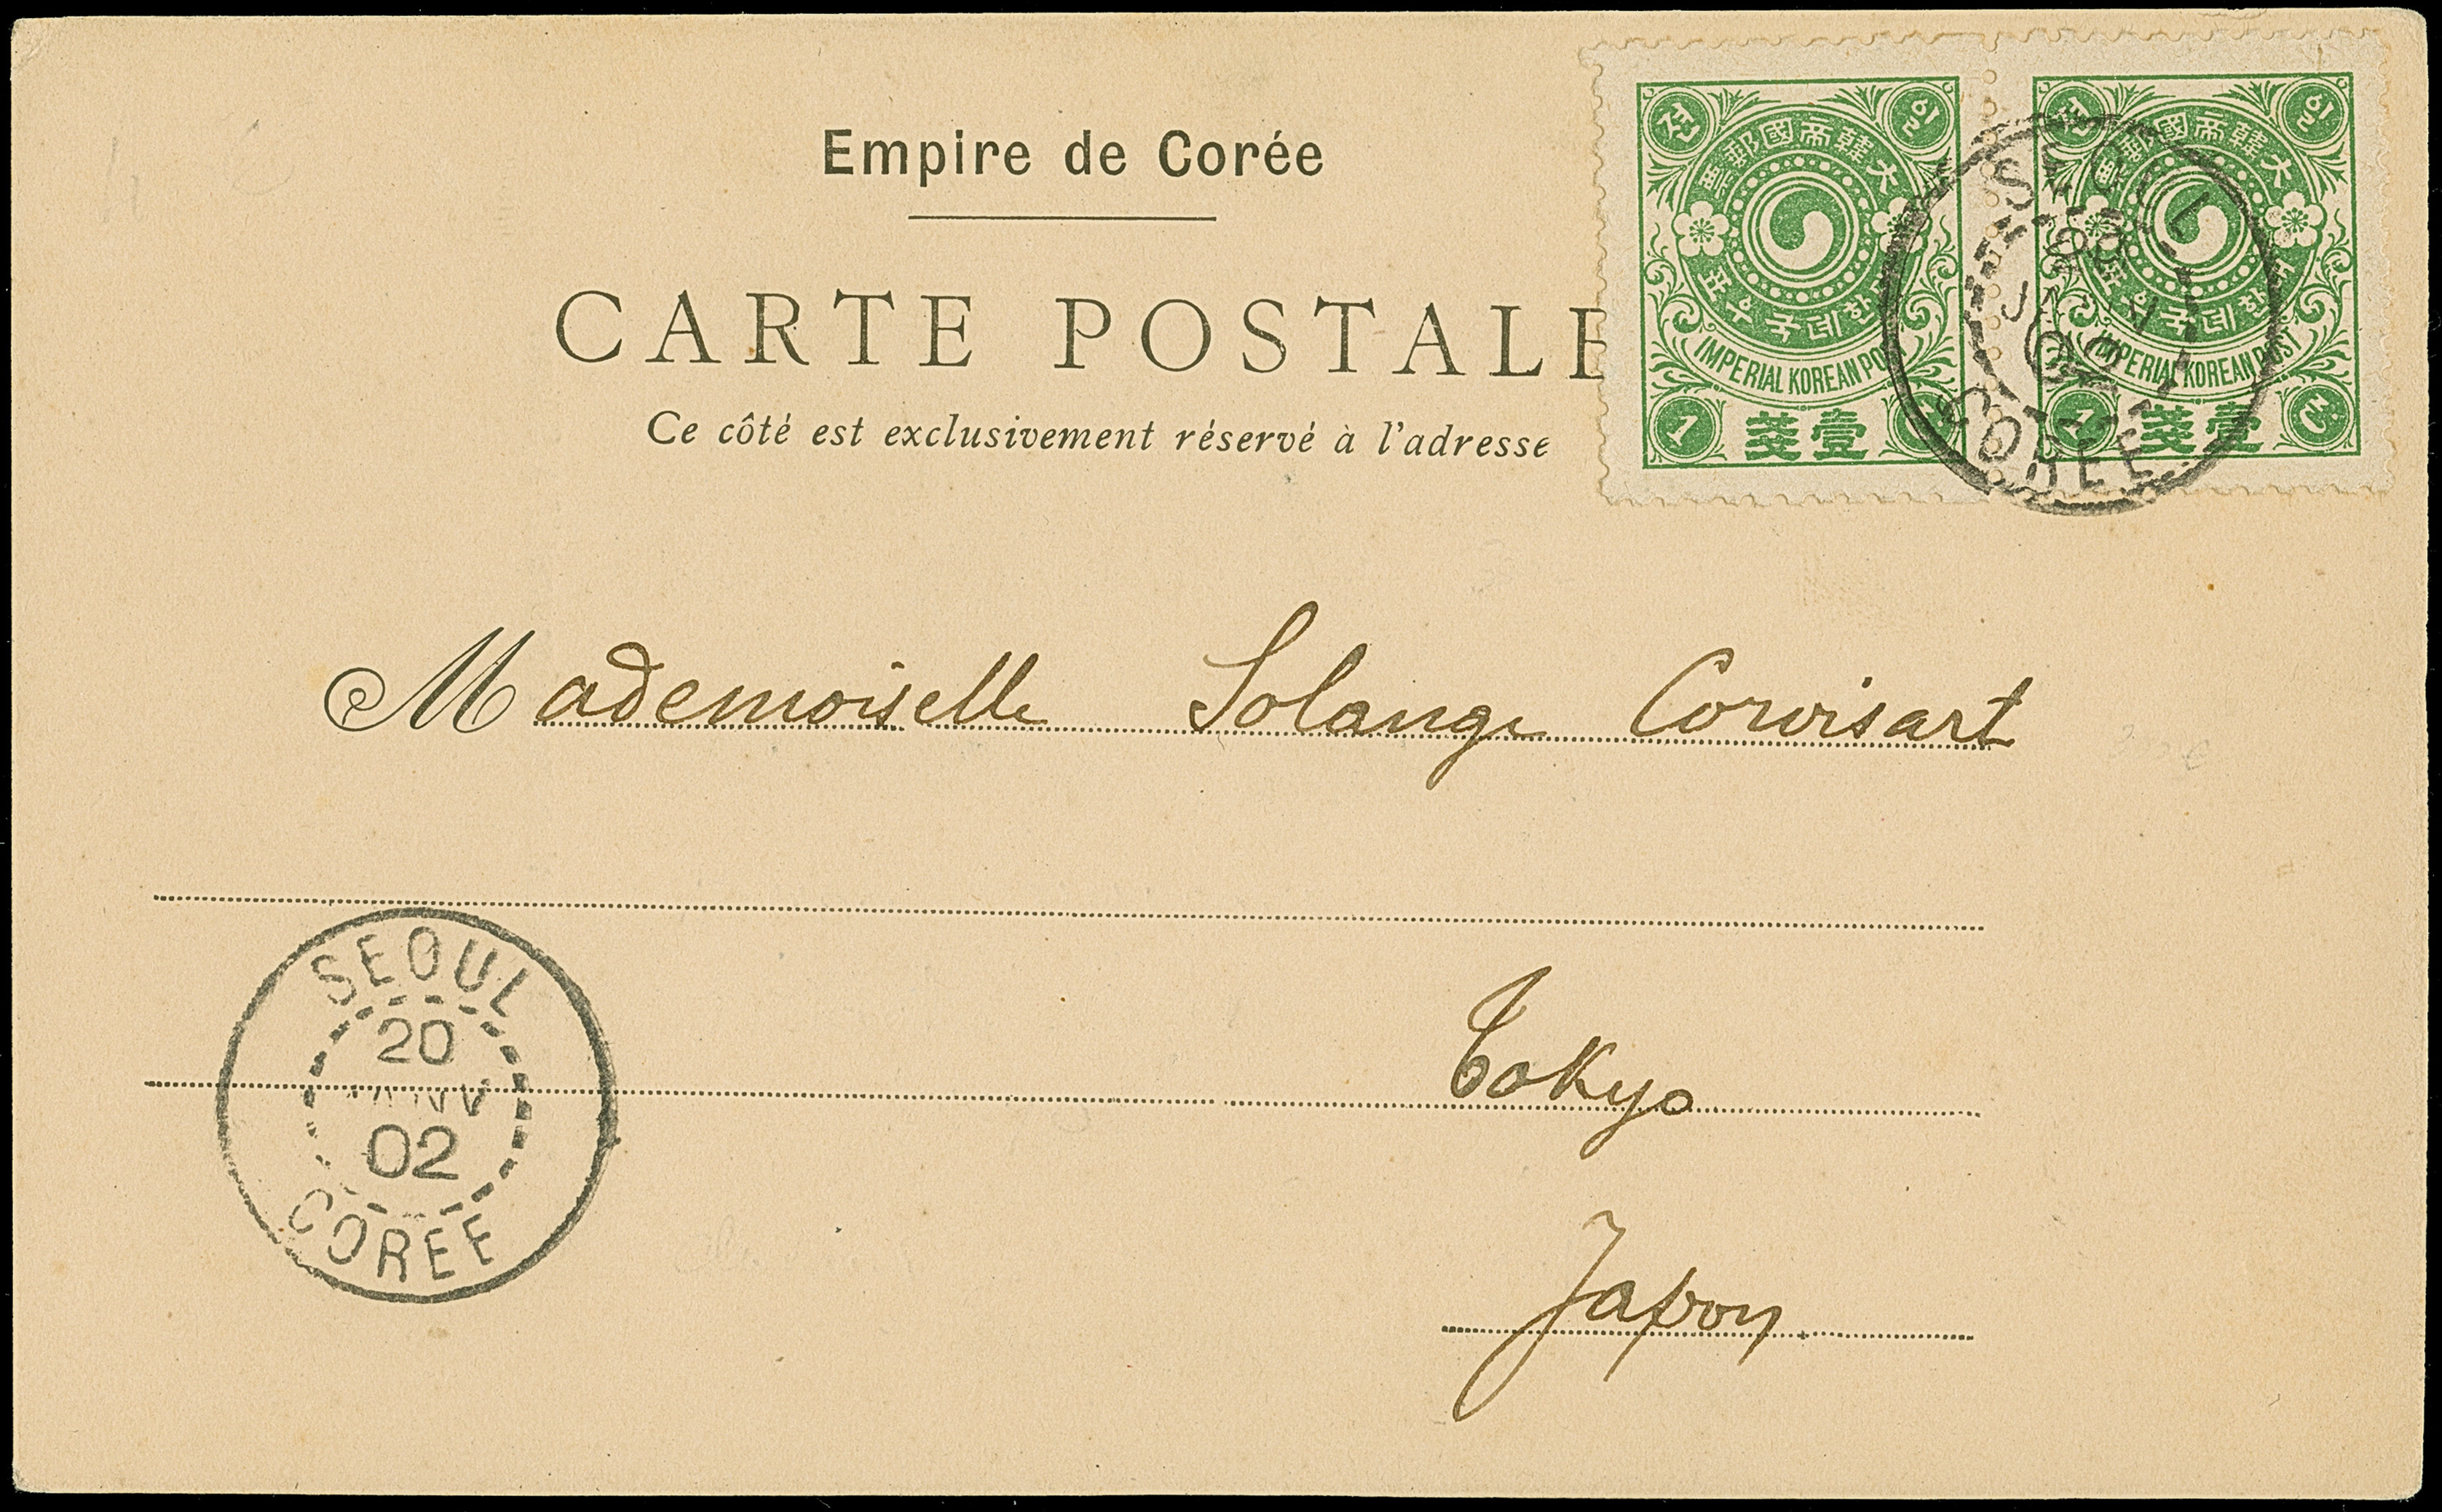 Empire de Corée
CARTE POSTALE
Ce côté est exclusivement réservé à l'adresse
전 일
大韓帝國郵票
대한국우표
IMPERIAL KOREAN PO
1
壹錢
전 일
大韓帝國郵票
대한국우표
IMPERIAL KOREAN POST
1
壹錢
SEOUL
COREE
Mademoiselle Solange Corvisart
Tokyo
Japon
SEOUL
20
JANV
02
COREE